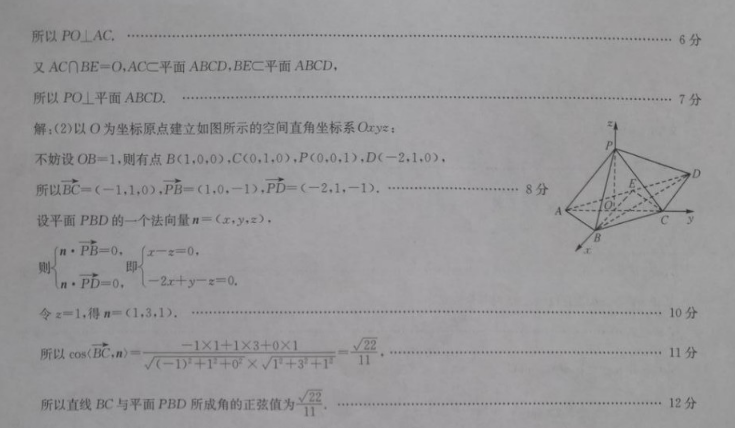 所以 PO⊥AC. …… 6 分
又 AC∩BE=O,AC⊂平面 ABCD,BE⊂平面 ABCD,
所以 PO⊥平面 ABCD. …… 7 分
解:(2)以 O 为坐标原点建立如图所示的空间直角坐标系 Oxyz;
不妨设 OB=1,则有点 B(1,0,0),C(0,1,0),P(0,0,1),D(−2,1,0),
所以$\overrightarrow{BC}$=(−1,1,0),$\overrightarrow{PB}$=(1,0,−1),$\overrightarrow{PD}$=(−2,1,−1). …… 8 分
设平面 PBD 的一个法向量 n=(x,y,z),
则$\begin{cases} n·\overrightarrow{PB}=0, \\ n·\overrightarrow{PD}=0, \end{cases}$即$\begin{cases} x-z=0, \\ -2x+y-z=0, \end{cases}$
令 z=1,得 n=(1,3,1). …… 10 分
所以 cos⟨$\overrightarrow{BC}$,n⟩=$\frac{-1×1+1×3+0×1}{\sqrt{(-1)^2+1^2+0^2}×\sqrt{1^2+3^2+1^2}}$=$\frac{\sqrt{22}}{11}$, …… 11 分
所以直线 BC 与平面 PBD 所成角的正弦值为$\frac{\sqrt{22}}{11}$. …… 12 分
z
P
D
E
A
O
C
y
B
x